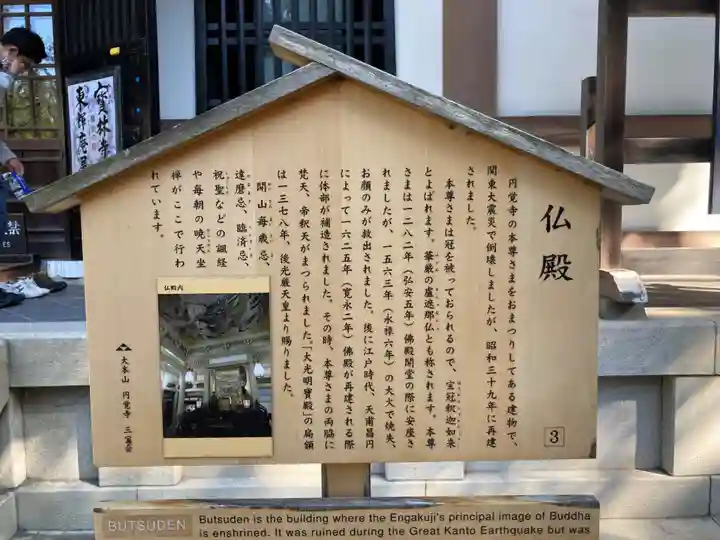 仏殿
円覚寺の本尊さまをおまつりしてある建物で、
関東大震災で倒壊しましたが、昭和三十九年に再建
されました。
本尊さまは冠を被っておられるので、宝冠釈迦如来
とよばれます。華厳の盧遮那仏とも称されます。本尊
さまは一二八二年（弘安五年）佛殿開堂の際に安座さ
れましたが、一五六三年（永禄六年）の大火で焼失、
お顔のみが救出されました。後に江戸時代、天甫昌円
によって一六二五年（寛永二年）佛殿が再建される際
に体部が補造されました。その時、本尊さまの両脇に
梵天、帝釈天がまつられました。「大光明寶殿」の扁額
は一三七八年、後光厳天皇より賜りました。
開山毎歳忌、
達磨忌、臨済忌、
祝聖などの諷経
や毎朝の暁天坐
禅がここで行わ
れています。
仏殿内
大本山 円覚寺
3
BUTSUDEN
Butsuden is the building where the Engakuji's principal image of Buddha
is enshrined. It was ruined during the Great Kanto Earthquake but was